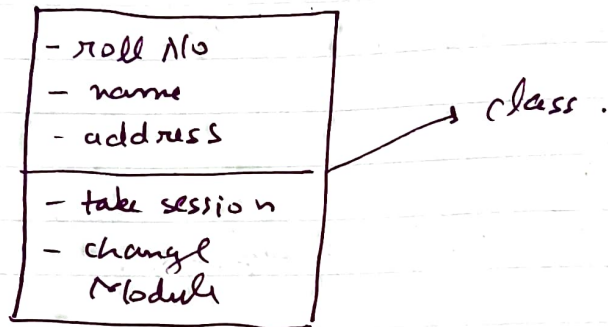 - roll No
- name
- address
- take session
- change
Module
class.